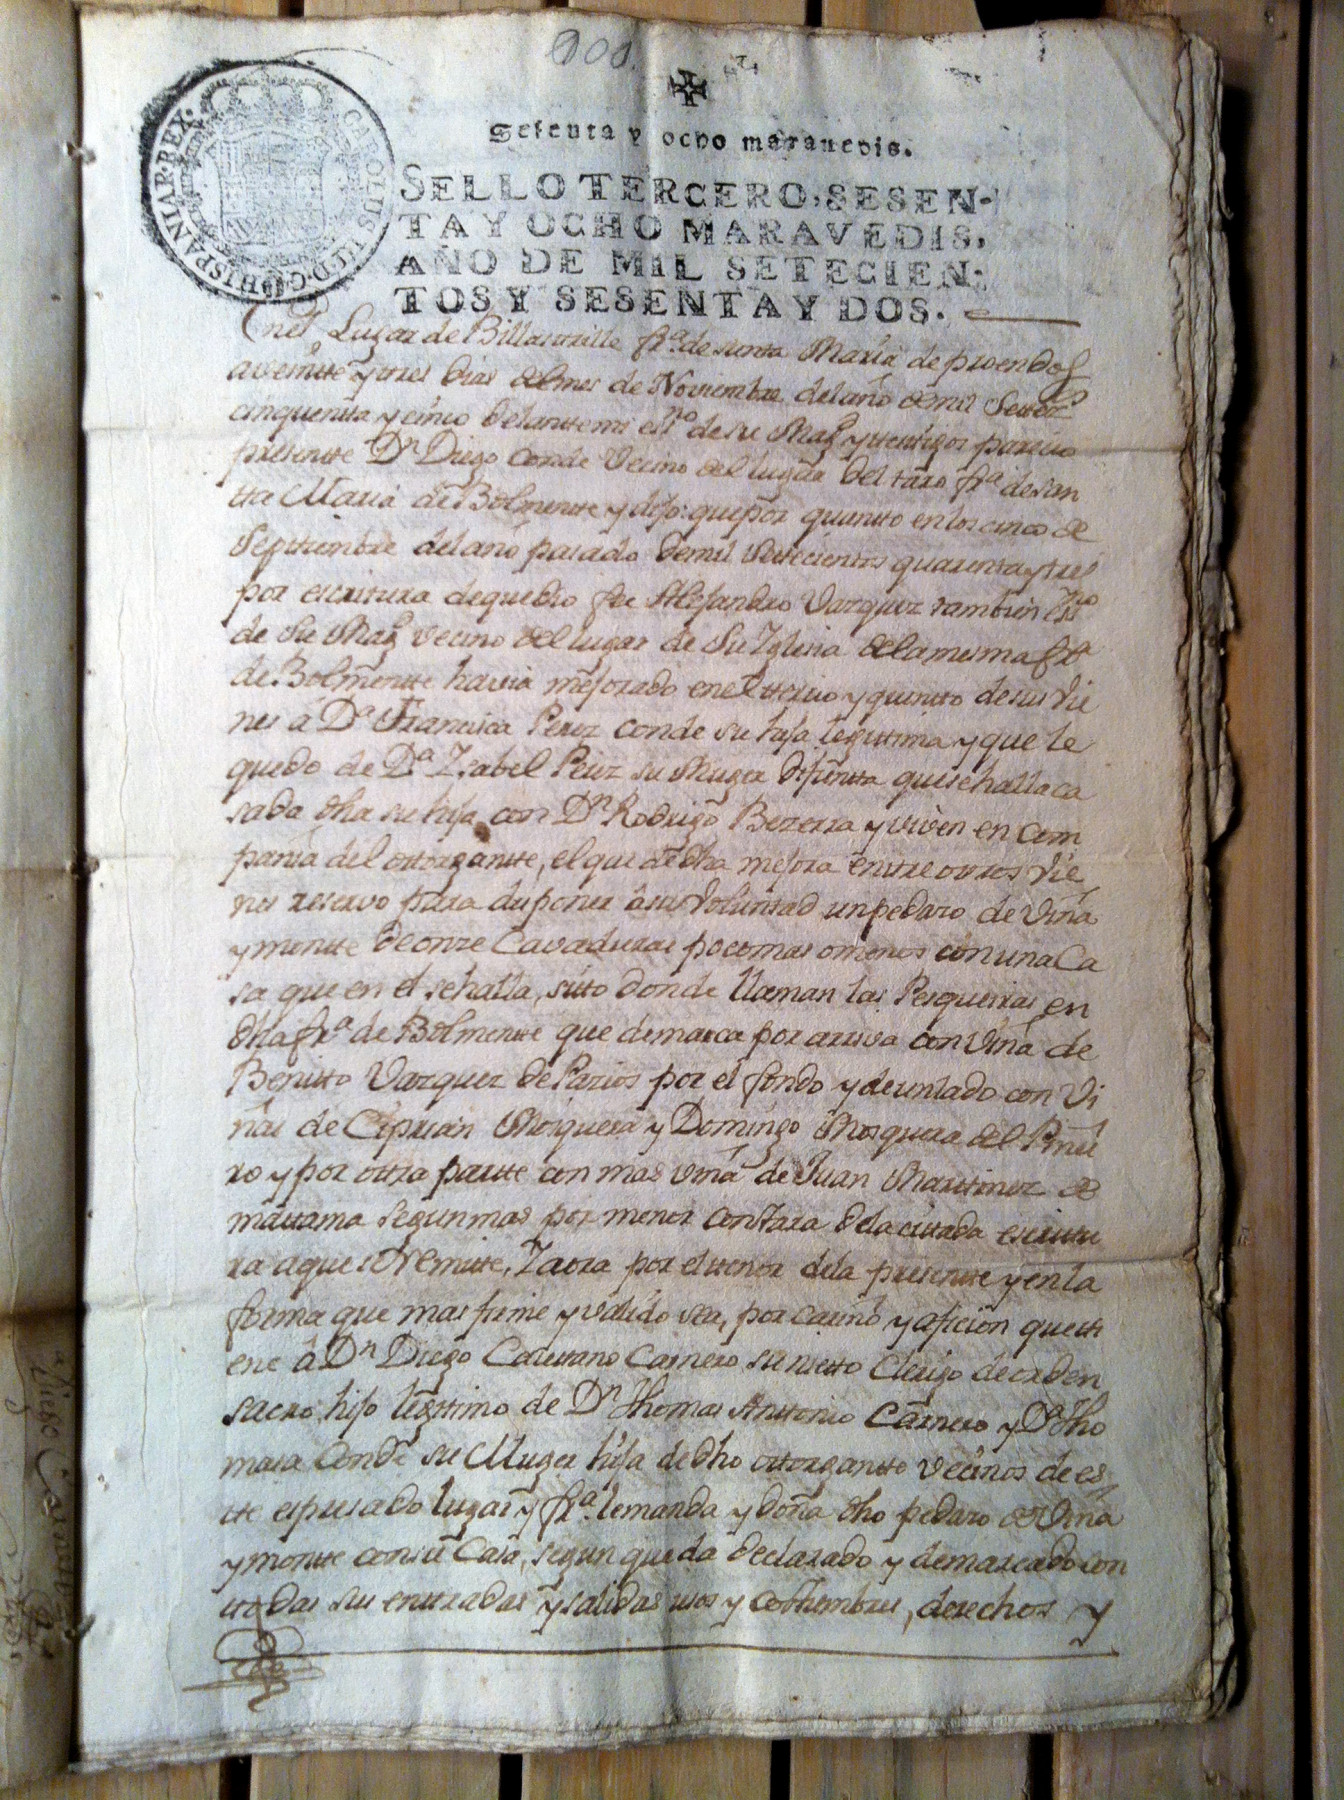 100.
Sesenta y ocho marauedis.
CAROLUS III D. G. HISPANIAR. REX.
SELLO TERCERO, SESEN-
TA Y OCHO MARAVEDIS,
AÑO DE MIL SETECIEN-
TOS Y SESENTA Y DOS.
Enel Lugar de frª. de santa Maria de proendos
aveintte y tres dias del mes de Noviembre del año de mil settez
cinquentta y cinco delantte mi essno de su Magd y testtigos parecio
presentte Dn Diego conde vecino del lugar del frª de san
tta Maria de Bolmentte y dijo: que por quantto en los cinco de
Septtiembre del año pasado demil settecientos quarenta y tres
por escritura dequedio fee Alejandro Vazquez tambien essno
de Su Magd vecino del lugar de Su Iglesia dela mesma frª
de Bolmentte havia mejorado enel ttercio y quintto de sus vie
nes á Dª Francisca Perez conde su hija legittima y que le
quedo de Dª Isabel Perez su Muger difuntta quese halla ca
sada dha su hija con Dn Rodrigo Bezerra y viven en com
pania del ottorgantte, el que de dha mejora enttre ottros vie
nes reservo para disponer á su voluntad un pedazo de viña
y montte de onze cavaduras poco mas o menos con una Ca
sa que en el se halla, sitto donde llaman las Pesqueiras en
dha frª de Bolmentte que demarca por arriva con viña de
Benitto Vazquez de Parios por el fondo y de un lado con vi
ñas de Ciprian Mosquera y Domingo Mosquera del Piñei
ro y por ottra partte con mas viña de Juan Marttinez de
segun mas por menor consttara dela cittada escrittu
ra aque se remitte, Y aora por el ttenor dela presentte y en la
forma que mas firme y valido sea, por cariño y aficion que tti
ene á Dn Diego Caiettano Carnero su nietto Clerigo de orden
sacro hijo legittimo de Dn Thomas Anttonio Carnero y Dª Tho
masa Conde su Muger hija de dho ottorgantte vecinos de es
tte espresado lugar y frª. le manda y dona dho pedazo de viña
y montte con su Casa, segun queda declarado y demarcado con
ttodas sus enttradas y salidas usos y costtumbres, derechos y